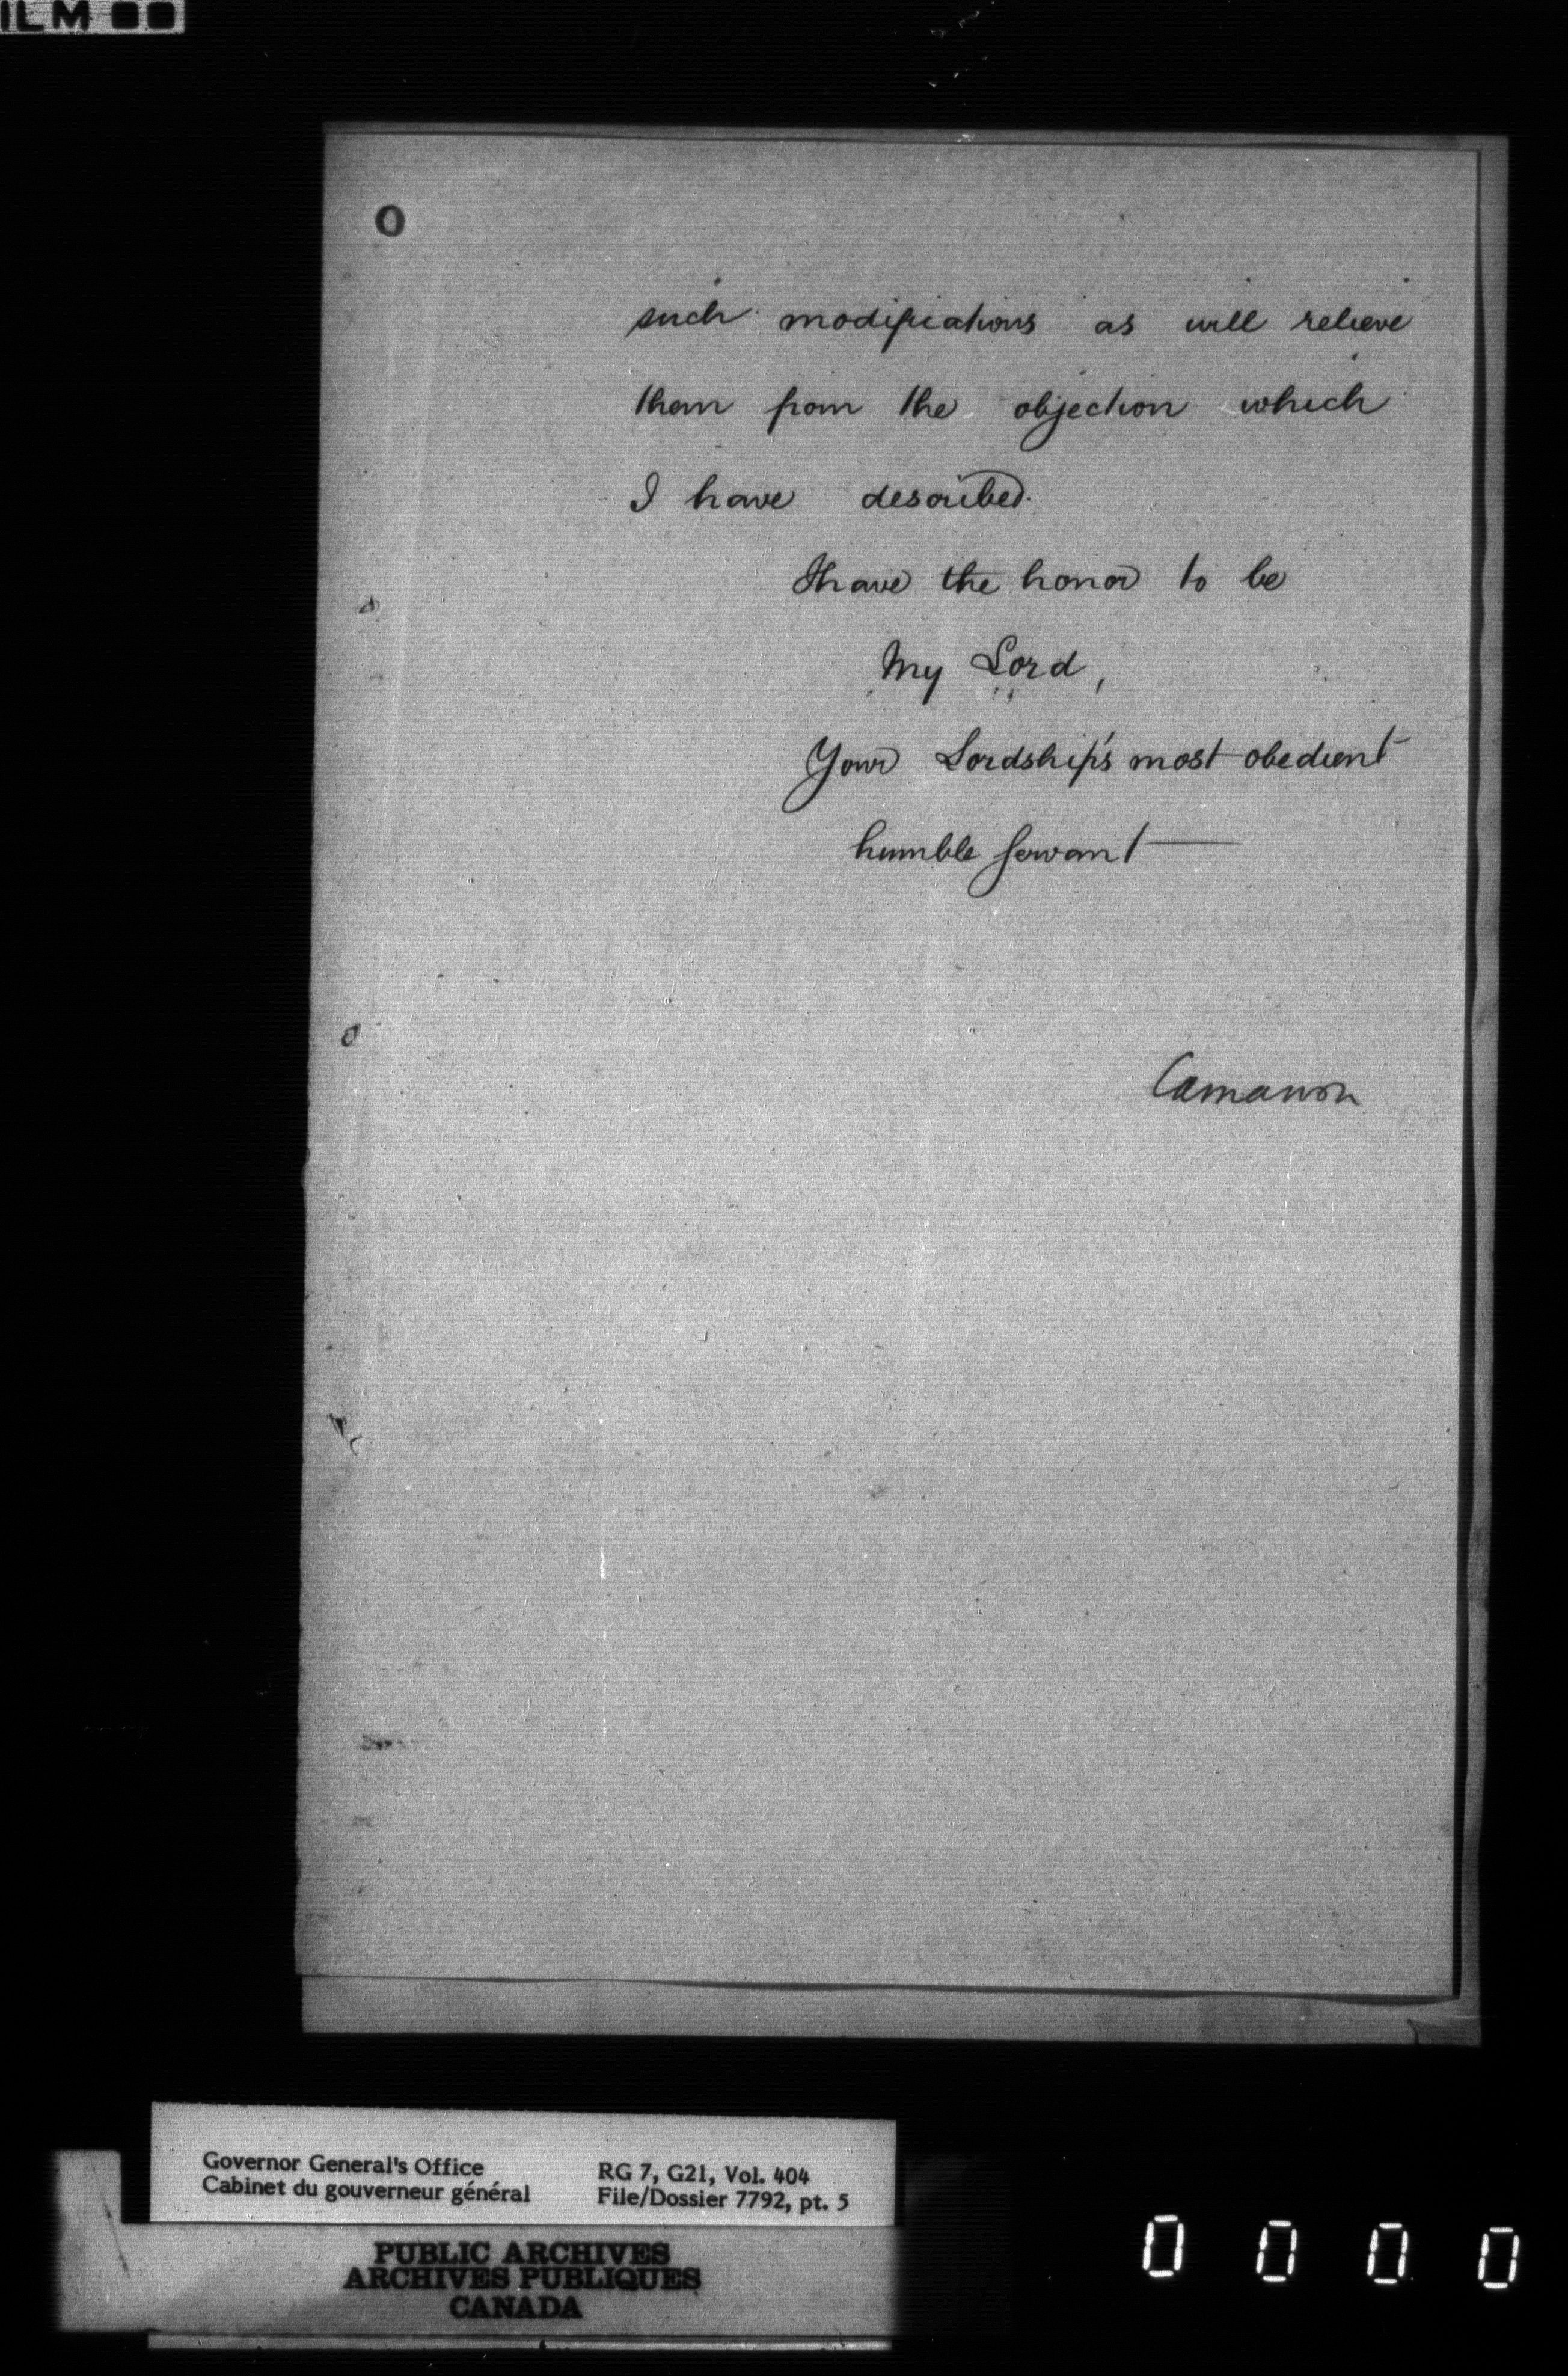 ILM
O
such modifications as will relieve
them from the objection which
I have described.
I have the honor to be
My Lord,
Your Lordship's most obedient
humble servant
Carnarvon
Governor General's Office
Cabinet du gouverneur général
RG 7, G21, Vol. 404
File/Dossier 7792, pt. 5
PUBLIC ARCHIVES
ARCHIVES PUBLIQUES
CANADA
0 0 0 0